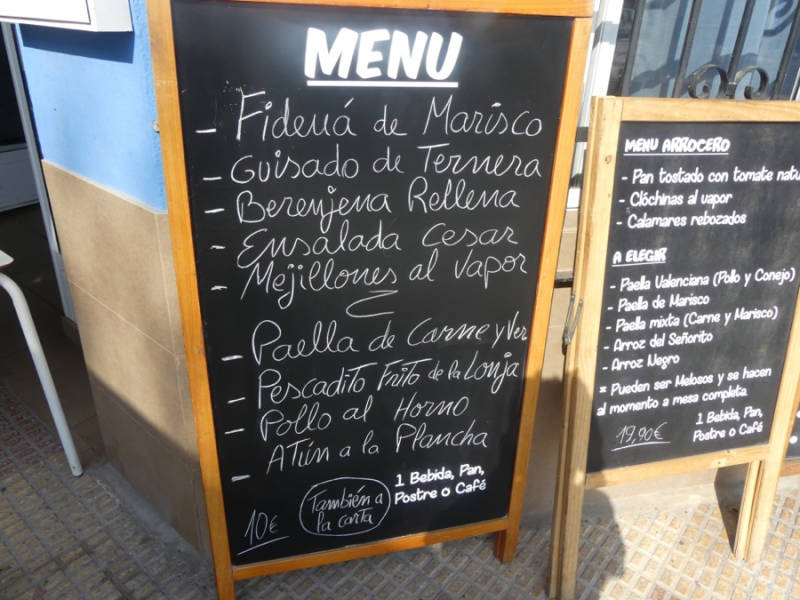 MENU
- Fideuá de Marisco
- Guisado de Ternera
- Berenjena Rellena
- Ensalada Cesar
- Mejillones al vapor
- Paella de Carne y Ver
- Pescadito Frito de la Lonja
- Pollo al Horno
- Atún a la Plancha
10€
También a
la carta
1 Bebida, Pan,
Postre o Café
MENU ARROCERO
- Pan tostado con tomate natu
- Clóchinas al vapor
- Calamares rebozados
A ELEGIR
- Paella Valenciana (Pollo y Conejo)
- Paella de Marisco
- Paella mixta (Carne y Marisco)
- Arroz del Señorito
- Arroz Negro
= Pueden ser Melosos y se hacen
al momento a mesa completa.
19,90€
1 Bebida, Pan,
Postre o Café